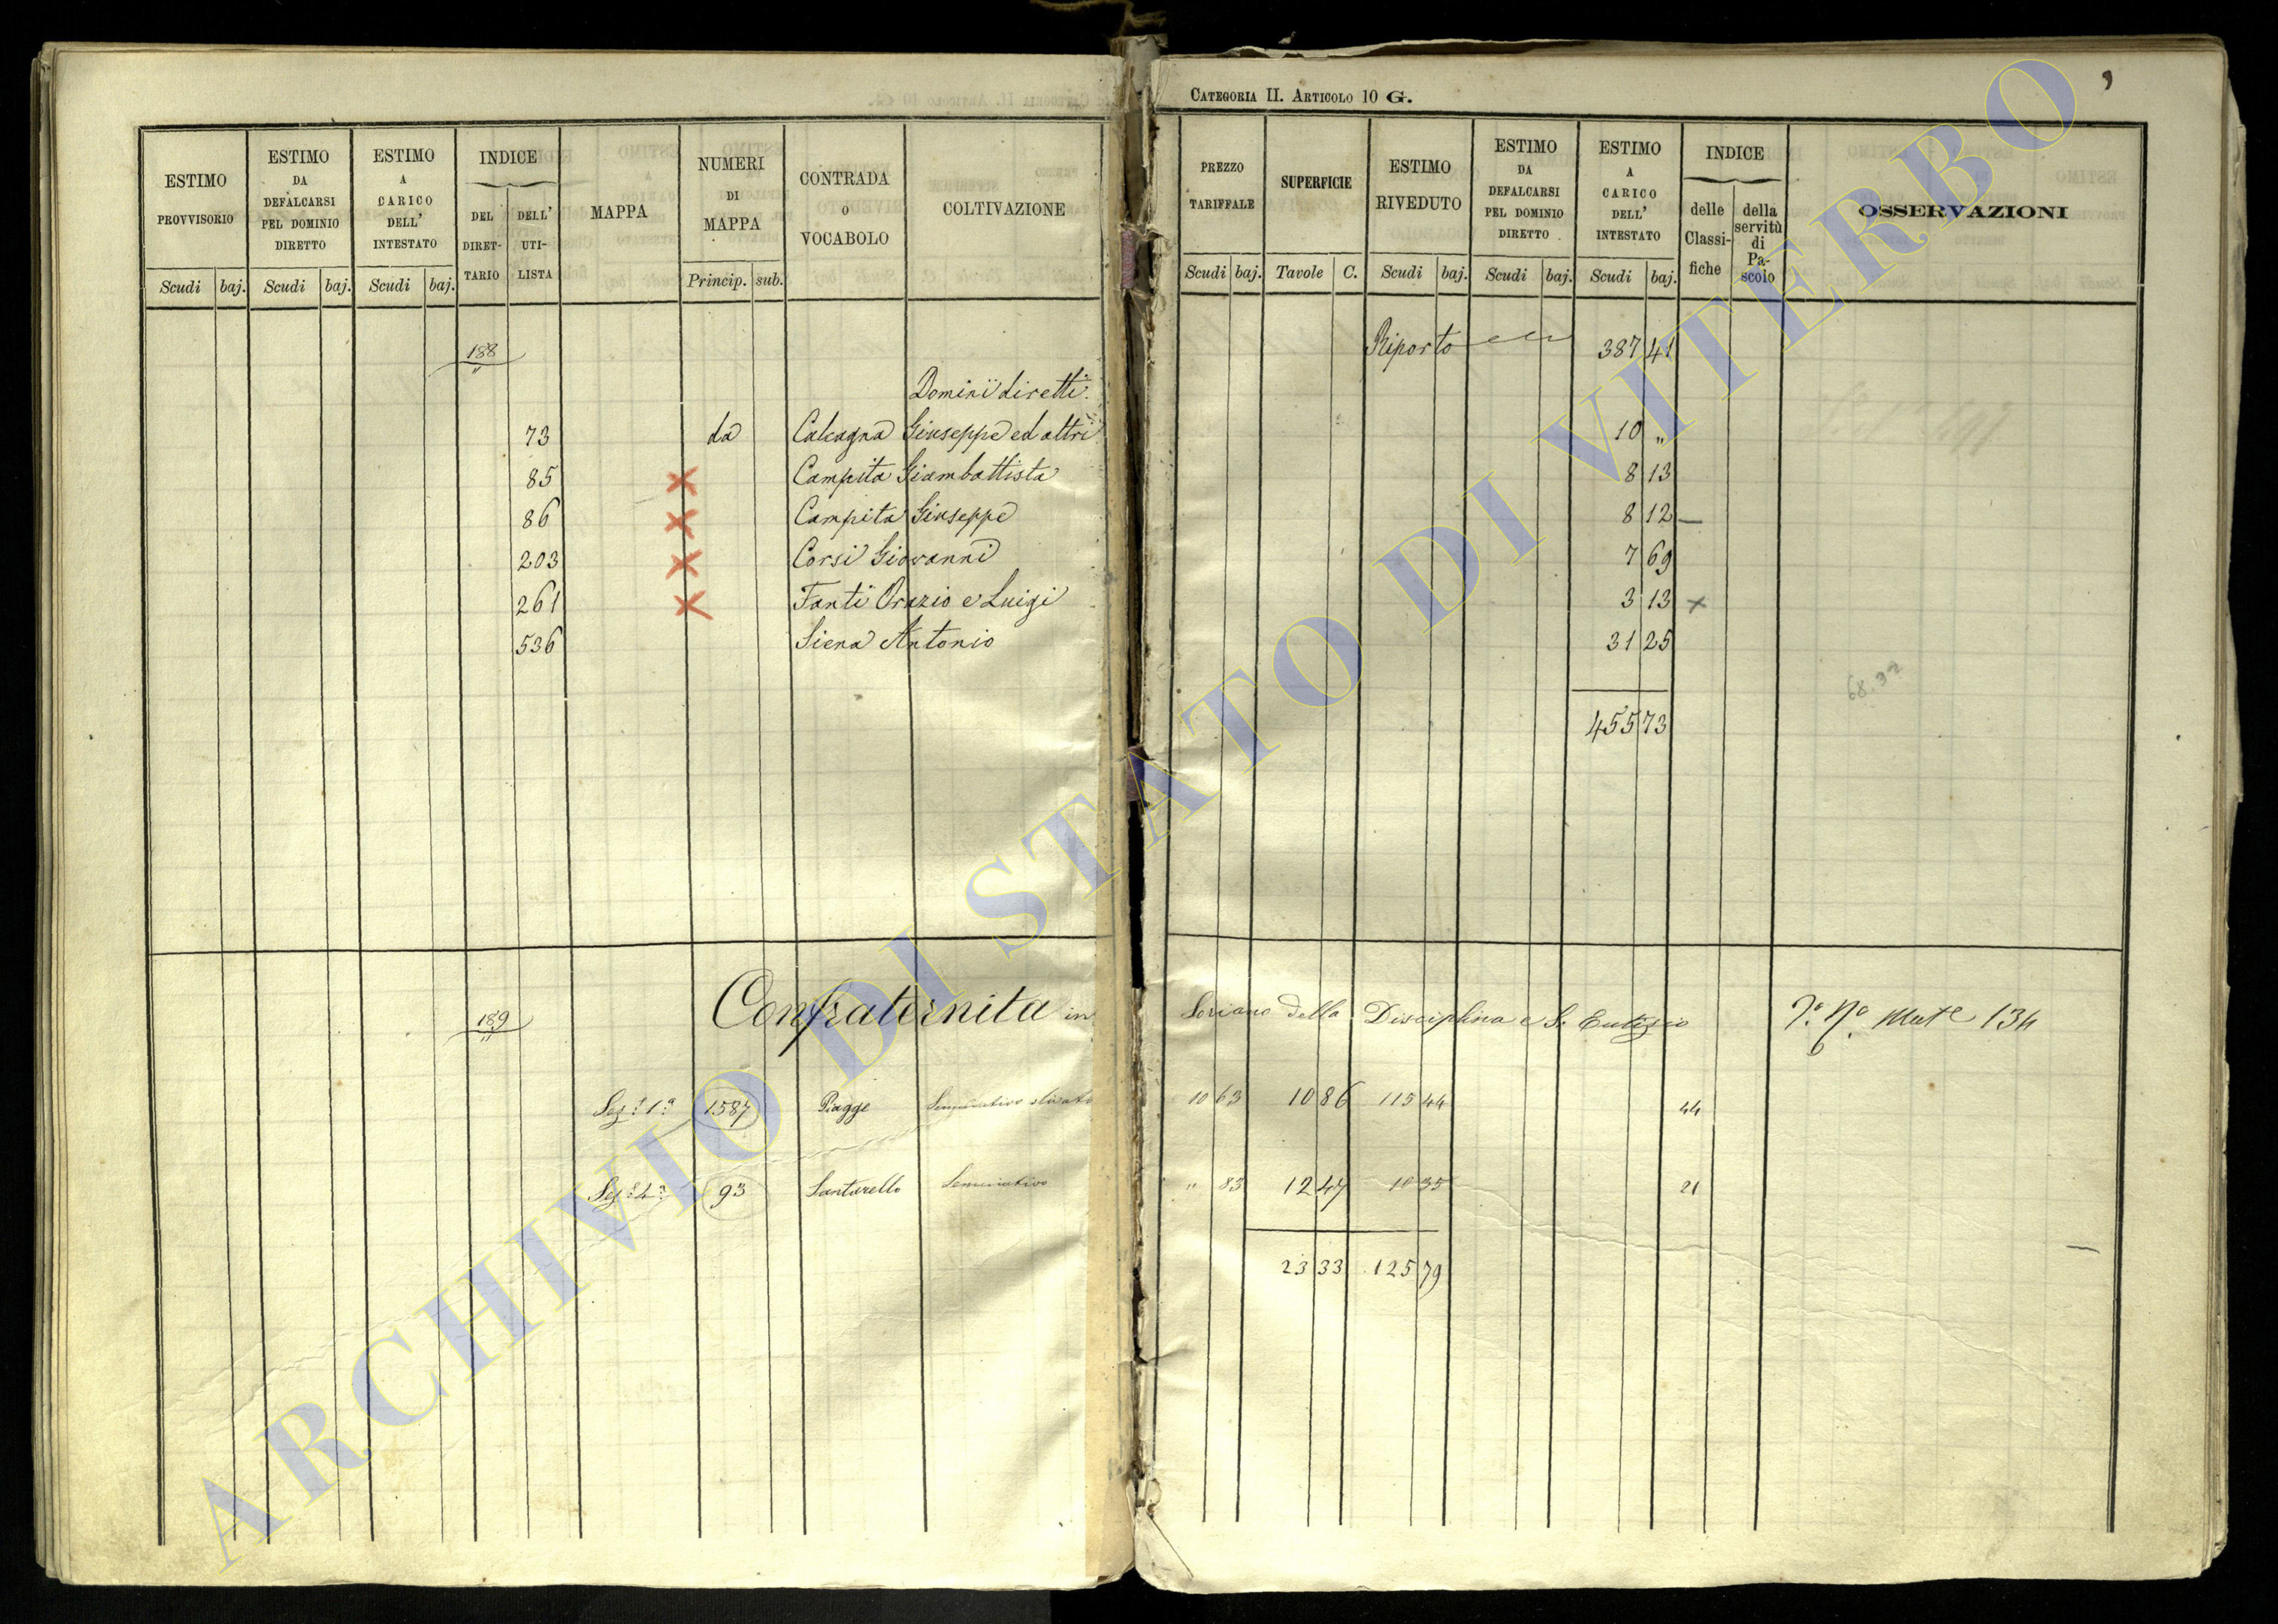 CATEGORIA II. ARTICOLO 10 G.
ESTIMO PROVVISORIO
Scudi baj.
ESTIMO DA DEFALCARSI PEL DOMINIO DIRETTO
Scudi baj.
ESTIMO A CARICO DELL' INTESTATO
Scudi baj.
INDICE
DEL DIRET-TARIO
DELL' UTI-LISTA
MAPPA
NUMERI DI MAPPA
Princip. sub.
CONTRADA O VOCABOLO
COLTIVAZIONE
PREZZO TARIFFALE
Scudi baj.
SUPERFICIE
Tavole C.
ESTIMO RIVEDUTO
Scudi baj.
ESTIMO DA DEFALCARSI PEL DOMINIO DIRETTO
Scudi baj.
ESTIMO A CARICO DELL' INTESTATO
Scudi baj.
INDICE
delle Classi-fiche
della servitù di Pa-scolo
OSSERVAZIONI
188 Riporto 387 41
Dominii diretti
73 da Calcagna Giuseppe ed altri 10 "
85 Campita Giambattista 8 13
86 Campita Giuseppe 8 12
203 Corsi Giovanni 7 69
261 Fanti Orazio e Luigi 3 13
536 Siena Antonio 31 25
68.32
455 73
189 Confraternita in Soriano della Disciplina e S. Eutizio 134
Sez. 1a 1587 Piagge Seminativo olivato 10 63 10 86 115 44 44
Sez. 4a 93 Santarello Seminativo " 83 12 47 10 35 21
23 33 125 79
ARCHIVIO DI STATO DI VITERBO